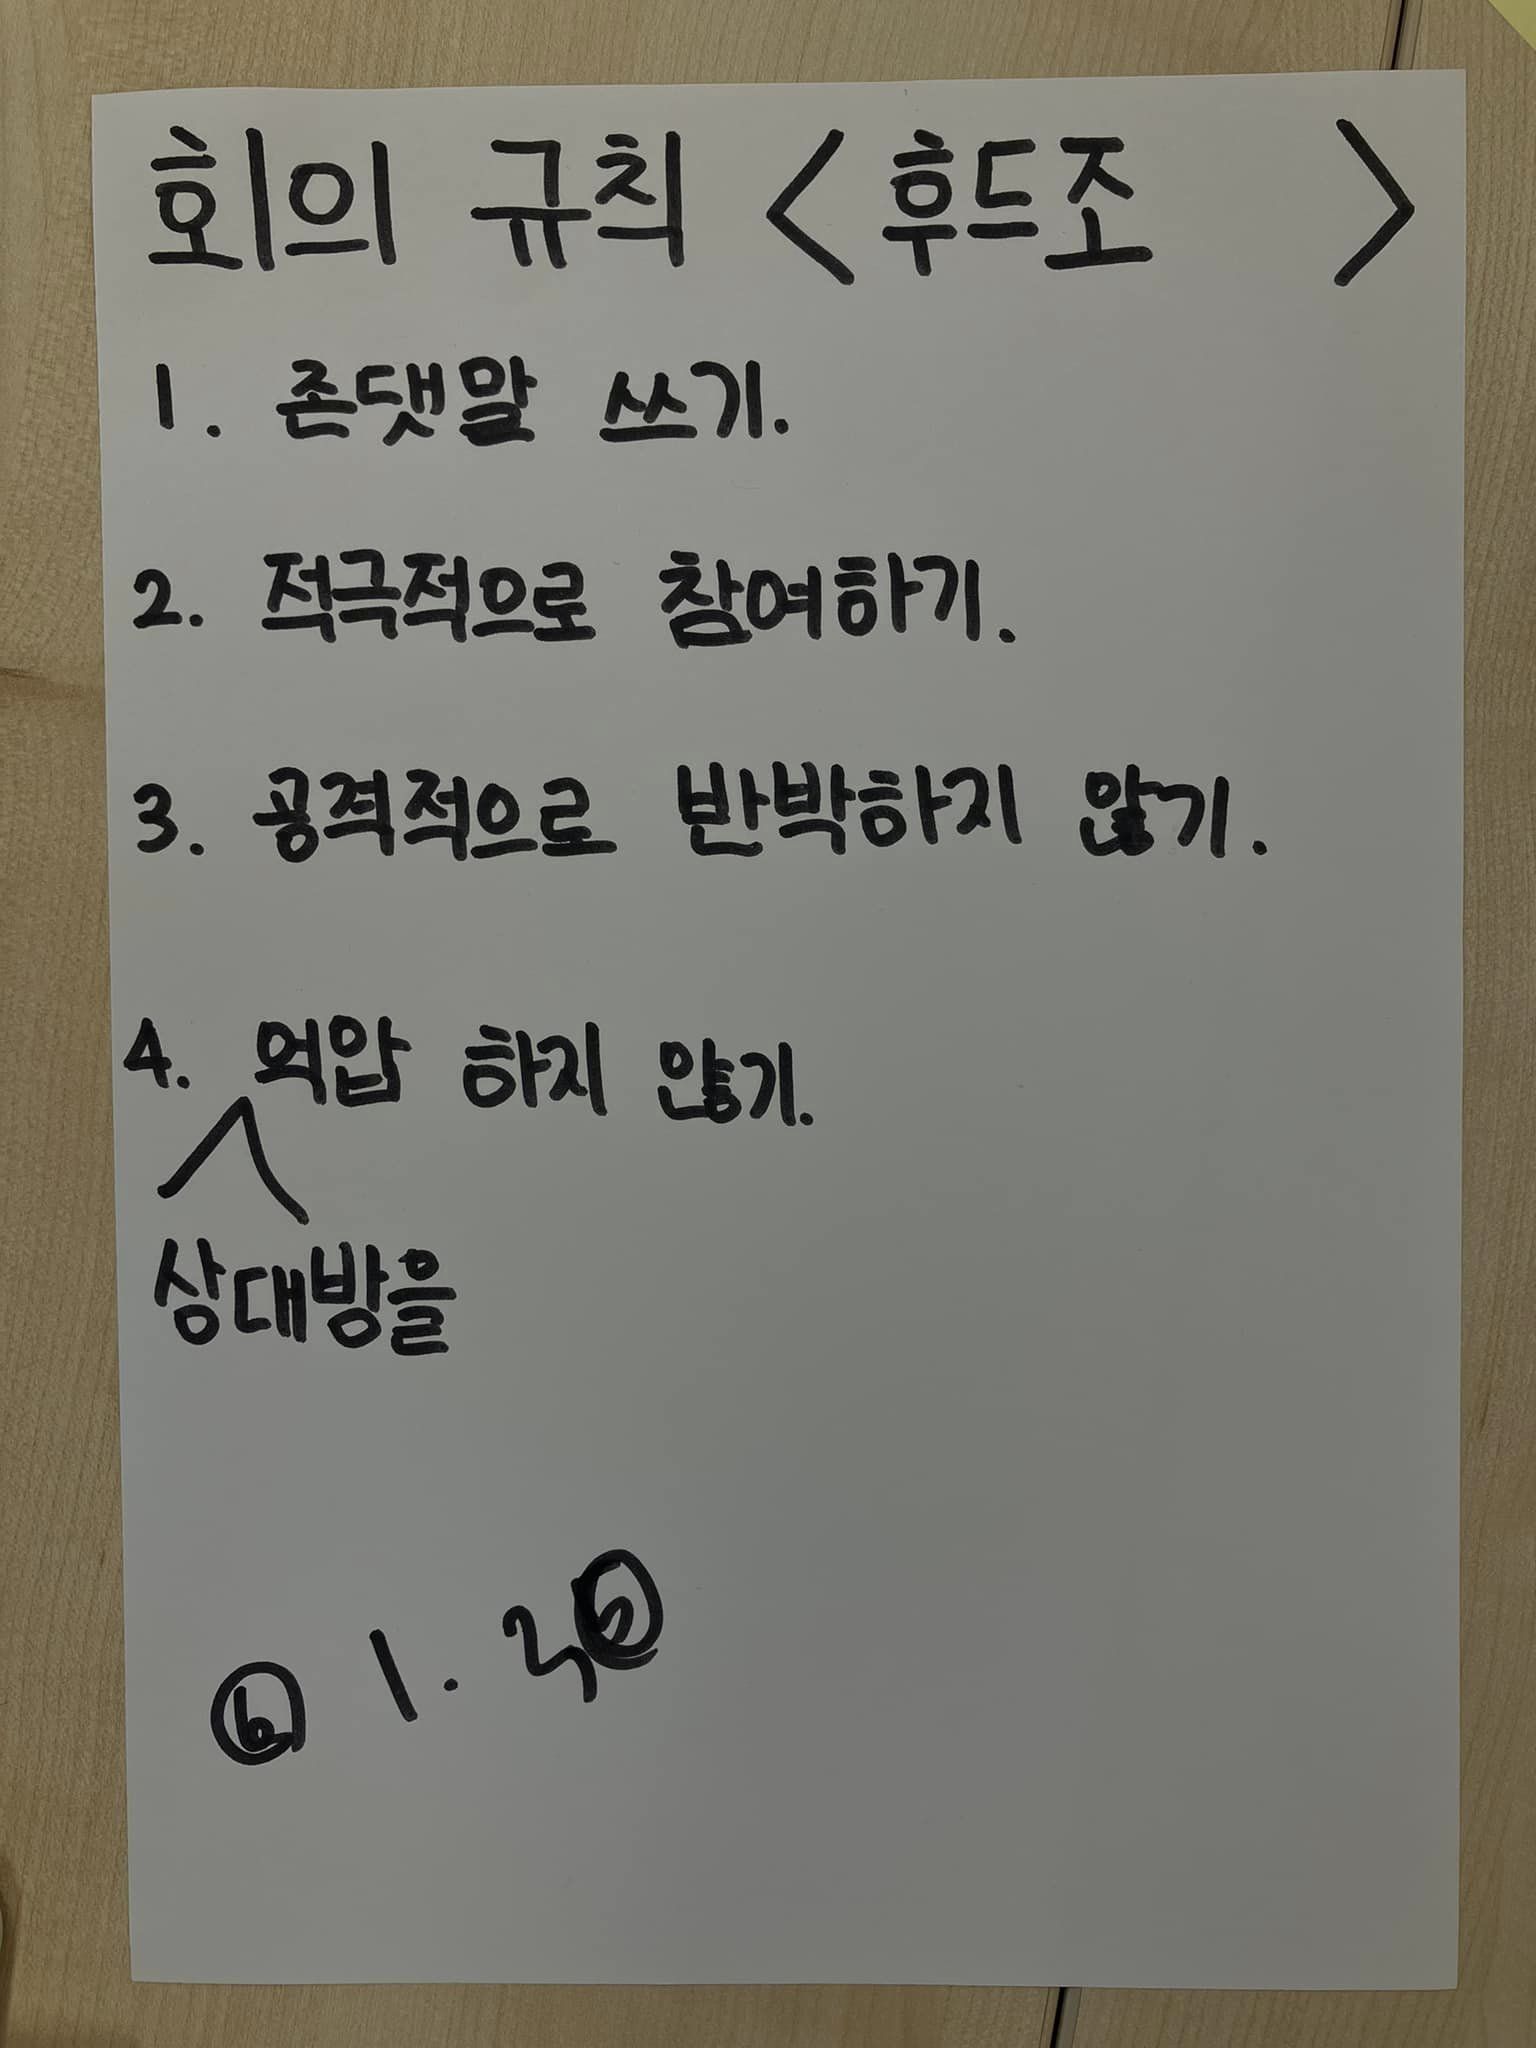 회의 규칙 <후드조 >
1. 존댓말 쓰기.
2. 적극적으로 참여하기.
3. 공격적으로 반박하지 않기.
4. 억압 하지 않기.
상대방을